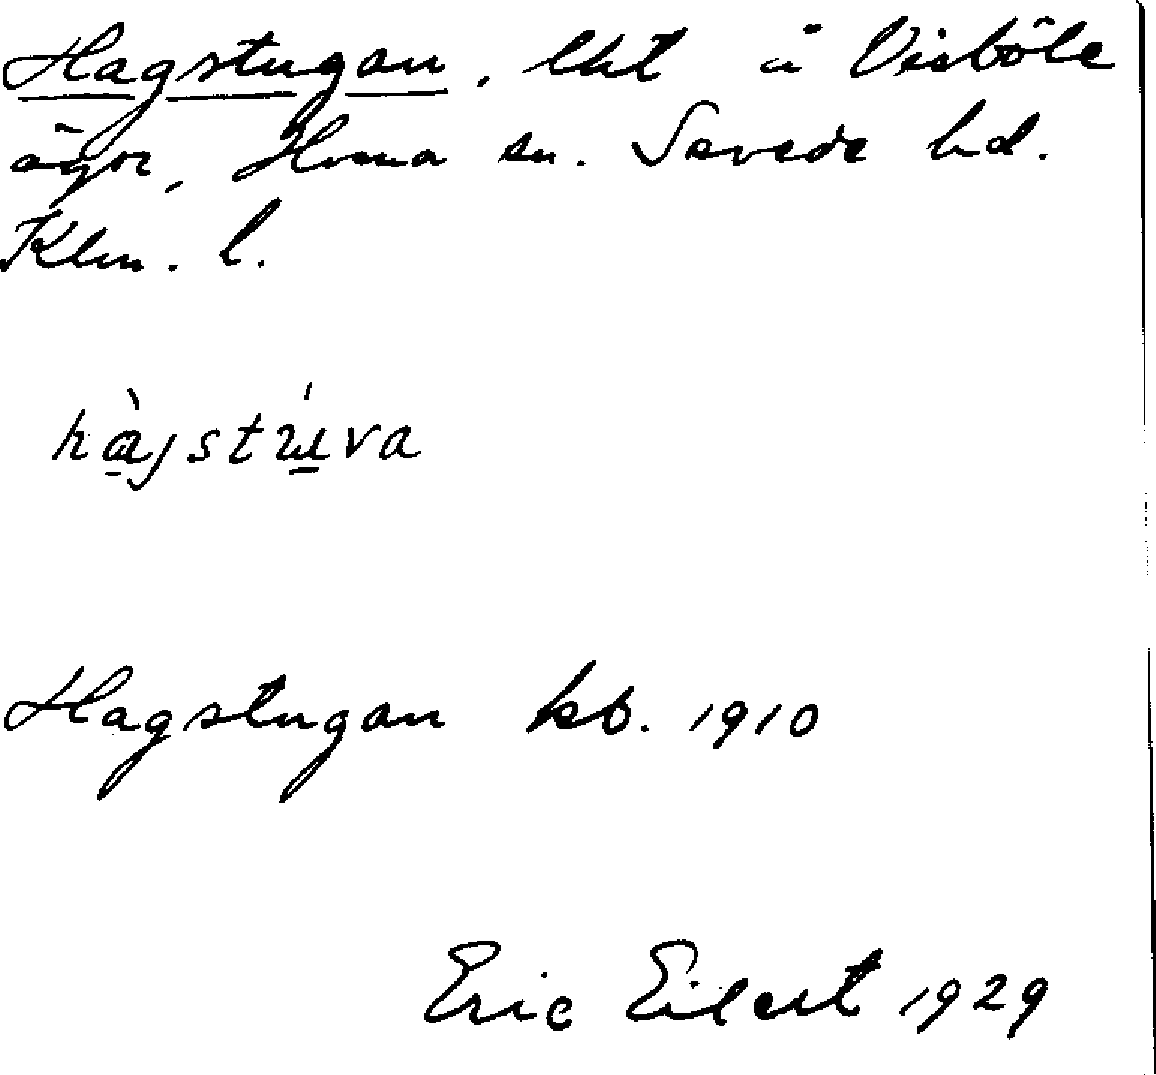 Hagstugan, lht å Visböle
ägor, Hvena sn. Sevede hd.
Klm. l.
hàjstúva
Hagstugan kb. 1910
Eric Eilert 1929